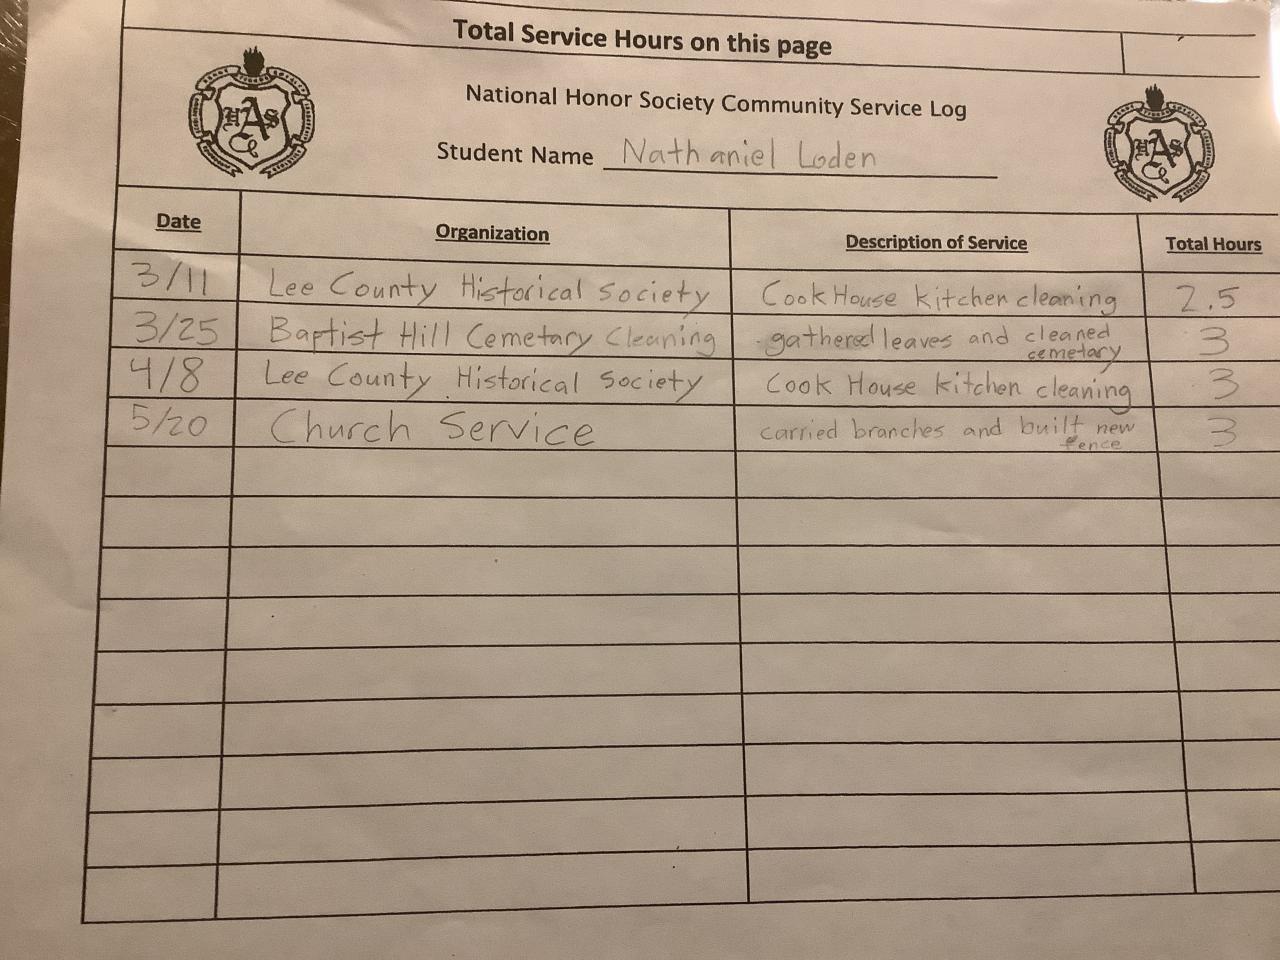 Total Service Hours on this page
National Honor Society Community Service Log
Student Name Nathaniel Loden
Date Organization Description of Service Total Hours
3/11 Lee County Historical Society Cook House kitchen cleaning 2.5
3/25 Baptist Hill Cemetary Cleaning gathered leaves and cleaned cemetary 3
4/8 Lee County Historical Society Cook House kitchen cleaning 3
5/20 Church Service carried branches and built new fence 3